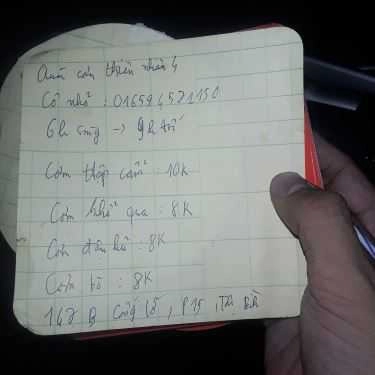 Quán cơm thiên nhiên 4
Cô nhỏ : 016594571150
6h sáng → 9h tối
Cơm thập cẩm : 10K
Cơm khổ qua : 8K
Cơm đậu hũ : 8K
Cơm bò : 8K
148 B Cống Lở, P15, TB